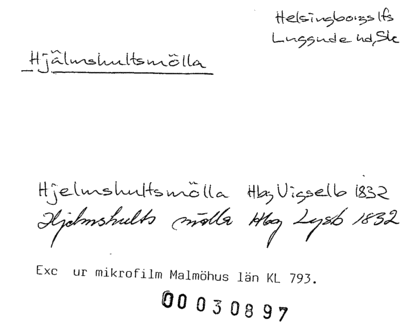 Helsingborgs lfs
Luggude hd, Sk
Hjälmshultsmölla
Hjelmshultsmölla Hbg Vigselb 1832
Hjelmshults mölla Hbg Lysb 1832
Exc ur mikrofilm Malmöhus län KL 793.
00030897